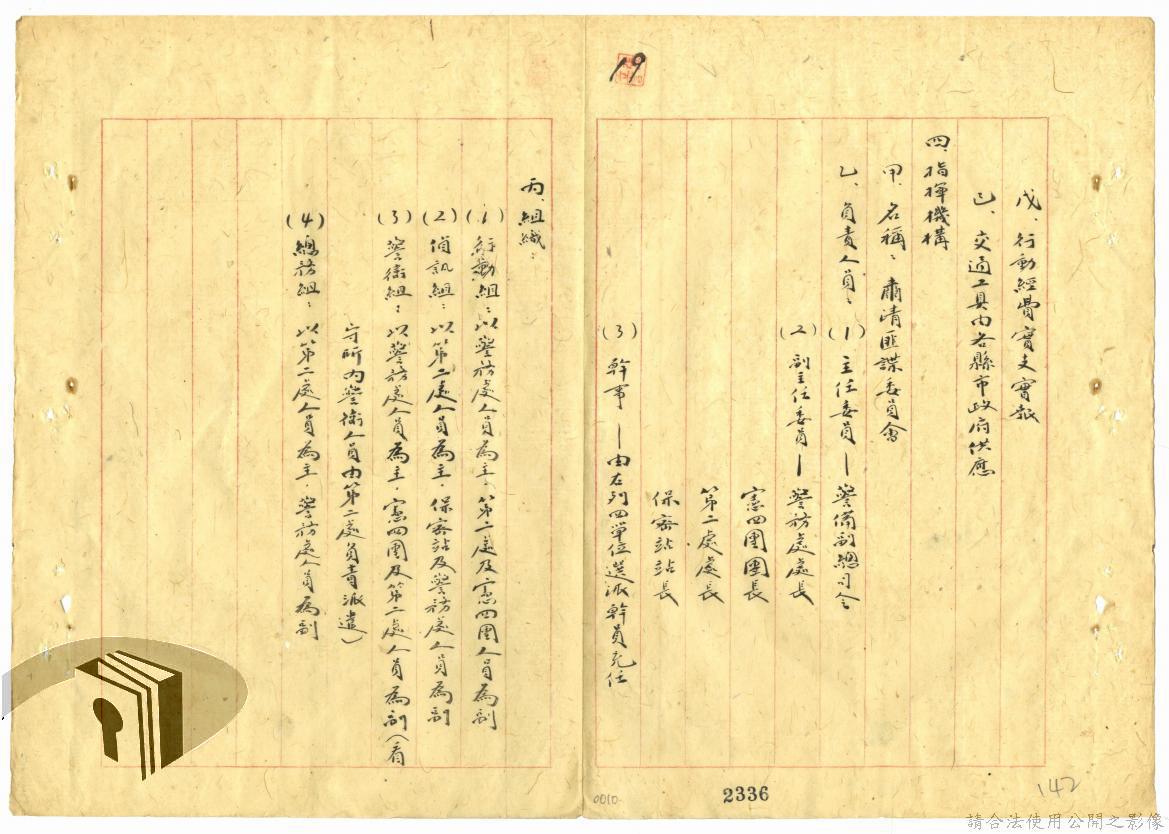 19
戊、行動經費實支實報
己、交通工具由各縣市政府供應
四、指揮機構
甲、名稱：肅清匪諜委員會
乙、負責人員：(1)主任委員—警備副總司令
(2)副主任委員—警務處處長
憲四團團長
第二處處長
保密站站長
(3)幹事—由右列四單位選派幹員充任
丙、組織：
(1)行動組：以警務處人員為主．第二處及憲四團人員為副
(2)偵訊組：以第二處人員為主．保密站及警務處人員為副
(3)警衛組：以警務處人員為主．憲四團及第二處人員為副(看
守所內警衛人員由第二處負責派遣)
(4)總務組：以第二處人員為主．警務處人員為副
0010
2336
142
請合法使用公開之影像